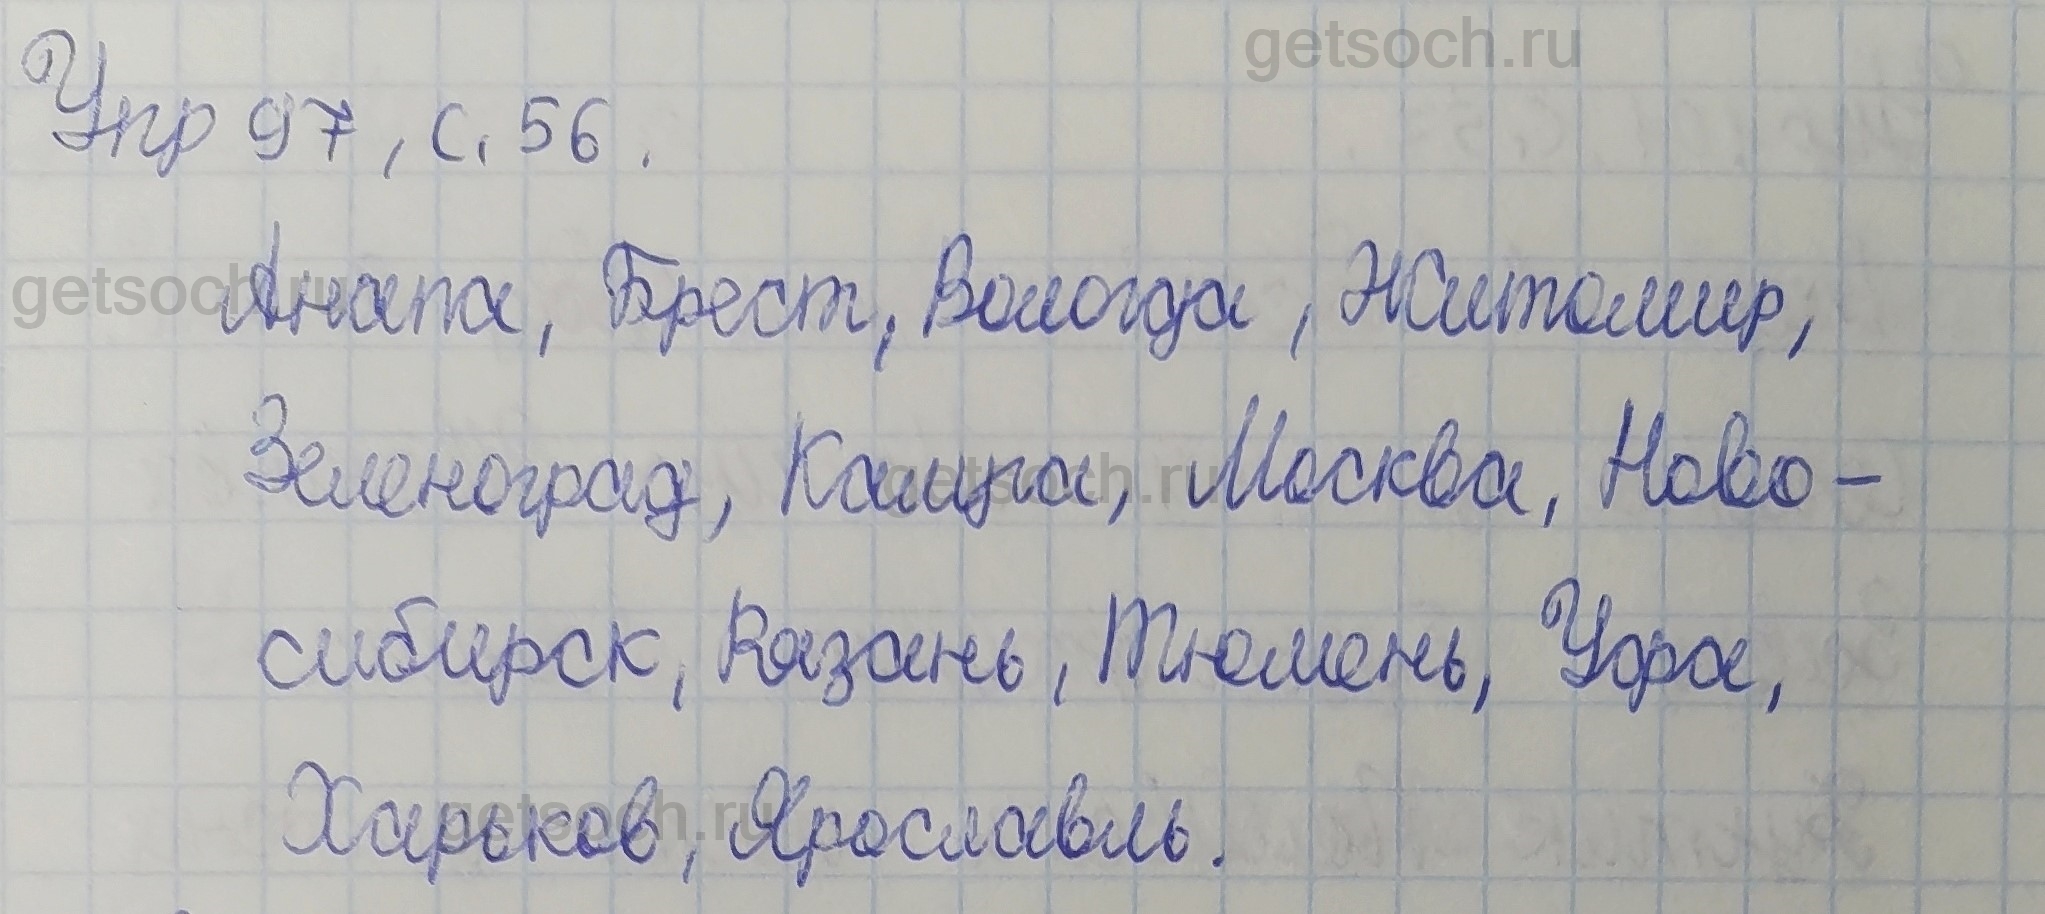 getsoch.ru
Упр 97, с. 56.
getsoch.ru
Анапа, Брест, Вологда, Житомир,
Зеленоград, Кашира, Москва, Ново-
getsoch.ru
сибирск, Казань, Тюмень, Уфа,
Харьков, Ярославль.
getsoch.ru